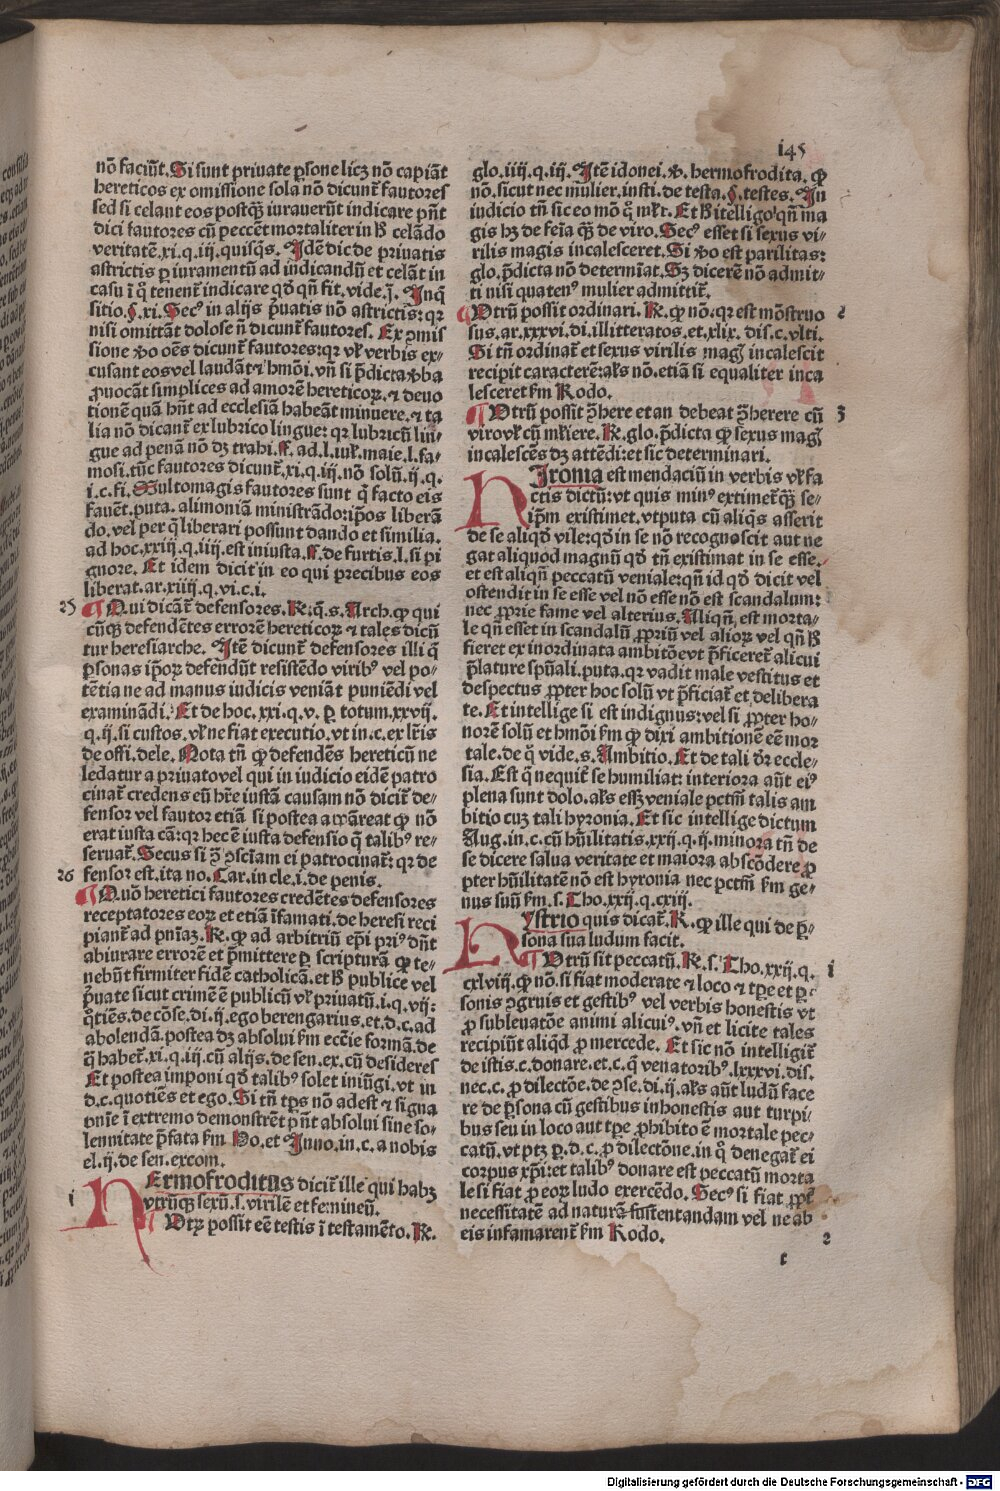 145
nō faciūt. Si sunt priuate ꝑsone licꝫ nō capiāt
hereticos ex omissione sola nō dicunt᷑ fautores
sed si celant eos postq̄ꝫ iurauerūt indicare pn̄t
dici fautores cū peccēt mortaliter in ħ celādo
veritatē.xi.q.iij.quisq̄s. Idē dic de priuatis
astrictis ꝑ iuramentū ad indicandū et celāt in
casu ī q̊ tenent᷑ indicare qd̓ qn̄ fit.vide.j. Inq̄
sitio.§.xi. Secꝰ in alijs p̄uatis nō astrictis: qꝛ
nisi omittāt dolose n̄ dicunt᷑ fautores. Ex ꝯmis
sione ꝟo oēs dicunt᷑ fautores: qꝛ vł verbis ex⸗
cusant eos vel laudāt ⁊ hmōi. vn̄ si p̄dicta ꝟba
ꝓuocāt simplices ad amorē hereticoꝝ. ⁊ deuo
tionē quā hn̄t ad ecclesiā habeāt minuere. ⁊ ta
lia nō dicant᷑ ex lubrico lingue: qꝛ lubricū lin⸗
gue ad penam nō dꝫ trahi. ff. ad.l.iuł.maie.l.fa⸗
mosi. tūc fautores dicunt᷑.xi.q.iij. nō solū.ij.q.
i.c.fi. Multomagis fautores sunt q̄ facto eis
fauēt. puta. alimoniā ministrādo: ip̄os liberā
do. vel per q̄ liberari possunt dando et similia.
ad hoc.xxiij.q.iiij.est iniusta. ff. de furtis.l.si pi
gnore. Et idem dicit᷑ in eo qui precibus eos
liberat.ar.xiiij.q.vi.c.i.
25 ¶ Qui dicāt᷑ defensores. R̄. q̄.s. Arch. ꝙ qui
cūqꝫ defendētes errorē hereticoꝝ ⁊ tales dicū
tur heresiarche. Itē dicunt᷑ defensores illi q̄
ꝑsonas ip̄oꝝ defendūt resistēdo viribꝰ vel po⸗
tētia ne ad manus iudicis veniāt puniēdi vel
examinādi. Et de hoc.xxi.q.v. ꝑ totum.xxvij.
q.ij.si custos. vł ne fiat executio. vt in.c.ex lr̄is
de offi.dele. Nota tn̄ ꝙ defendēs hereticū ne
ledatur a priuato vel qui in iudicio eidē patro
cinat᷑ credens eū hr̄e iustā causam nō dicit᷑ de⸗
fensor vel fautor etiā si postea appareat ꝙ nō
erat iusta cā: qꝛ hec ē iusta defensio q̄ talibꝰ re⸗
seruat᷑. Secus si ꝯ̄ ꝯsciam ei patrocinat᷑: qꝛ de
fensor est. ita no. Car. in cle.i.de penis.
26 ¶ Quō heretici fautores credētes defensores
receptatores eoꝝ et etiā īfamati. de heresi reci
piant᷑ ad pn̄iaꝫ. R̄. ꝙ ad arbitriū ep̄i priꝰ dn̄t
abiurare errorē et ꝓmittere ꝑ scripturā ꝙ te⸗
nebūt firmiter fidē catholicā. et ħ publice vel
p̄uate sicut crimē ē publicū vł priuatū.i.q.vij:
q̊tiēs.de cōse.di.ij.ego berengarius.et.d.c.ad
abolendā. postea dꝫ absolui ẜm ecc̄ie formā. de
q̄ habet᷑.xi.q.iij.cū alijs.de sen.ex.cū desideres
Et postea imponi qd̓ talibꝰ solet iniūgi. vt in
d.c.quotiēs et ego. Si tn̄ tp̄s nō adest ⁊ signa
pn̄ie ī extremo demonstrēt pn̄t absolui sine so⸗
lennitate p̄fata ẜm Ho. et Inno. in.c.a nobis
el.ij.de sen.excom.
i Hermofroditus dicit᷑ ille qui habꝫ
vtrūqꝫ sexū.s.virilē et femineū.
¶ Vtꝝ possit eē testis ī testamēto. R̄.
glo.iiij.q.iij. Itē idonei.ꝟ. hermofrodita. ꝙ
nō. sicut nec mulier. insti.de testa.§.testes. In
iudicio tn̄ sic eo mō q̊ mł̓r. Et ħ ītelligoꝰ qn̄ ma
gis hꝫ de feīa q̄ꝫ de viro. Secꝰ esset si sexus vi⸗
rilis magis incalesceret. Si ꝟo est parilitas:
glo. p̄dicta nō determīat. Sꝫ dicerē nō admit⸗
ti nisi quatenꝰ mulier admittit᷑.
¶ Vtrū possit ordinari. R̄. ꝙ nō. qꝛ est mōstruo 2
sus.ar.xxxvi.di.illitteratos.et.xlix.dis.c.vlti.
Si tn̄ ordinat᷑ et sexus virilis magꝭ incalescit
recipit caracterē: ał̓s nō. etiā si equaliter inca
lesceret ẜm Rodo.
¶ Vtrū possit ꝯ̄here et an debeat ꝯ̄herere cū 3
viro vł cū mł̓iere. R̄. glo. p̄dicta ꝙ sexus magꝭ
incalescēs dꝫ attēdi: et sic determinari.
Hironia est mendaciū in verbis vł fa
ctis dictū: vt quis minꝰ extimet᷑ q̄ꝫ se⸗
ip̄m existimet. vtputa cū aliq̄s asserit
de se aliqd̓ vile: qd̓ in se nō recognoscit aut ne
gat aliquod magnū qd̓ tn̄ existimat in se esse.
et est aliqn̄ peccatū veniale: qn̄ id qd̓ dicit vel
ostendit in se esse vel nō esse nō est scandalum:
nec ꝓprie fame vel alterius. Aliqn̄ est morta⸗
le qn̄ esset in scandalū ꝓpriū vel alioꝝ vel qn̄ ħ
fieret ex inordinata ambitōe vt p̄ficeret᷑ alicui
p̄lature spūali. puta. qꝛ vadit male vestitus et
despectus ꝓpter hoc solū vt p̄ficiat᷑ et delibera
te. Et intellige si est indignus: vel si ꝓpter ho⸗
norē solū et hmōi ẜm ꝙ dixi ambitionē eē mor
tale. de q̊ vide.s. Ambitio. Et de tali dr̄ eccle⸗
sia. Est q̄ nequit᷑ se humiliat: interiora aūt eiꝰ
plena sunt dolo. ał̓s essꝫ veniale pctm̄ talis am
bitio cuꝫ tali hyronia. Et sic intellige dictum
Aug. in.c.cū hūilitatis.xxij.q.ij.minora tn̄ de
se dicere salua veritate et maiora abscōdere ꝓ
pter hūilitatē nō est hyronia nec pctm̄ ẜm ge⸗
nus suū ẜm.s. Tho.xxij.q.cxiij.
Hystrio quis dicat᷑. R̄. ꝙ ille qui de ꝑ⸗
sona sua ludum facit.
¶ Vtrū sit peccatū. R̄.s. Tho.xxij.q. i
cxlviij. ꝙ nō. si fiat moderate ⁊ loco ⁊ tp̄e et ꝑ⸗
sonis ꝯgruis et gestibꝰ vel verbis honestis vt
ꝓ subleuatōe animi alicuiꝰ. vn̄ et licite tales
recipiūt aliqd̓ ꝓ mercede. Et sic nō intelligit᷑
de istis.c.donare.et.c.q̄ venatoribꝰ.lxxxvi.dis.
nec.c.ꝓ dilectōe.de ꝯse.di.ij. ał̓s aūt ludū face
re de ꝑsona cū gestibus inhonestis aut turpi⸗
bus seu in loco aut tp̄e ꝓhibito ē mortale pec⸗
catū. vt ptꝫ ꝑ.d.c.ꝓ dilectōne. in q̊ denegat᷑ ei
corpus xp̄i: et talibꝰ donare est peccatū morta
le si fiat ꝓ eoꝝ ludo exercēdo. Secꝰ si fiat ꝓpt̓
necessitatē ad naturā sustentandam vel ne ab
eis infamarent᷑ ẜm Rodo.
t 2
Digitalisierung gefördert durch die Deutsche Forschungsgemeinschaft - DFG